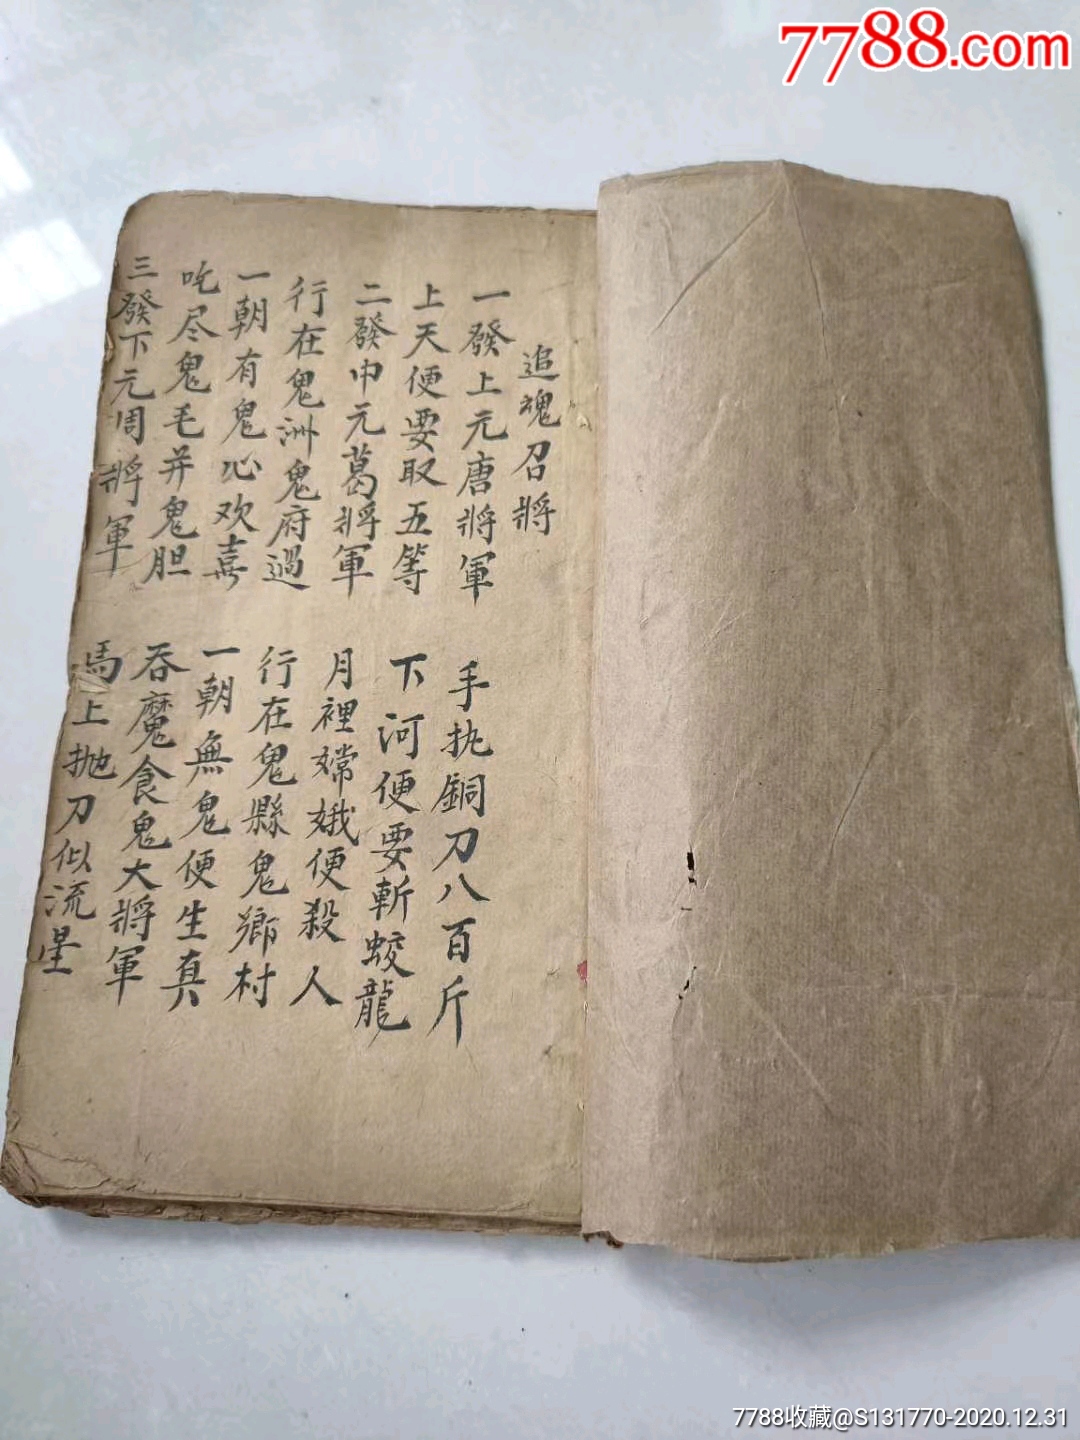 7788.com
追魂召將
一發上元唐將軍 手执銅刀八百斤
上天便要取五等 下河便要斬蛟龍
二發中元葛將軍 月裡嫦娥便殺人
行在鬼洲鬼府過 行在鬼縣鬼鄉村
一朝有鬼心欢喜 一朝無鬼便生真
吃尽鬼毛并鬼胆 吞魔食鬼大將軍
三發下元周將軍 馬上抛刀似流星
7788收藏@S131770-2020.12.31